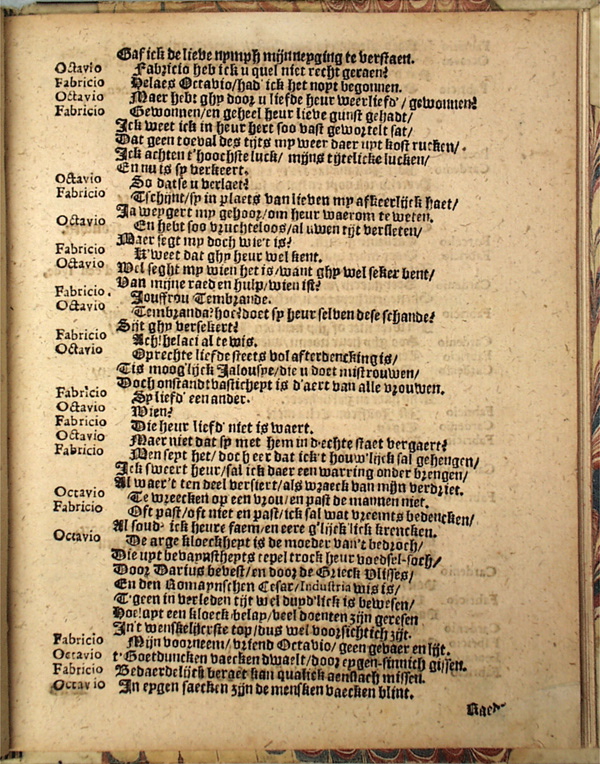 Gaf ick de lieve nymph mijn neyging te verstaen.
Octavio Fabricio heb ick u quel niet recht geraen?
Fabricio Helaes Octavio/had' ick het noyt begonnen.
Octavio Maer hebt ghy door u liefde heur weerliefd'/ gewonnen?
Fabricio Gewonnen/en geheel heur lieve gunst gehadt/
Ick weet ick in heur hert soo vast gewortelt sat/
Dat geen toeval des tijts my weer daer uyt kost rucken/
Ick achten t'hoochste luck/ mijns tijtelicke lucken/
En nu is sy verkeert.
Octavio So datse u verlaet?
Fabricio Tschijnt/sy in plaets van lieven my afkeerlijck haet/
Ja weygert my gehoor/om heur waerom te weten.
Octavio En hebt soo vruchteloos/al uwen tijt versleten/
Maer segt my doch wie't is?
Fabricio K'weet dat ghy heur wel kent.
Octavio Wel seght my wien het is/want ghy wel seker bent/
Van mijne raed en hulp/wien ist?
Fabricio. Jouffrou Tembrande.
Octavio Tembranda? hoe? doet sy heur selven dese schande?
Sijt ghy versekert?
Fabricio Ach! helaci al te wis.
Octavio Oprechte liefde steets vol afterdencking is/
Tis moog'lijck Jalousye/die u doet mistrouwen/
Doch onstandtvasticheyt is d'aert van alle vrouwen.
Fabricio Sy liefd' een ander.
Octavio Wien?
Fabricio Die heur liefd' niet is waert.
Octavio Maer niet dat sy met hem in d'echte staet vergaert?
Fabricio Men seyt het/ doch eer dat ick't houw'lijck sal gehengen/
Ick sweert heur/sal ick daer een warring onder brengen/
Al waer't ten deel versiert/als wraeck van mijn verdriet.
Octavio Te wreecken op een vrou/en past de mannen niet.
Fabricio Oft past/oft niet en past/ick sal wat vreemts bedencken/
Al soud' ick heure faem/en eere g'lijck'lick krencken.
Octavio De arge kloeckheyt is de moeder van't bedroch/
Die uyt bevaynstheyts tepel trock heur voedsel-soch/
Door Darius bevest/en door de Grieck Vlisses/
En den Romaynschen Cesar/Industria wis is/
T'geen in verleden tijt wel duyd'lick is bewesen/
Hoe!uyt een kloeck belay/veel doenten zijn geresen
In't wenskelijcxste top/dus wel voorsichtich zijt.
Fabricio Mijn voorneem/ vriend Octavio/ geen gevaer en lijt.
Octavio t'Goetduncken vaecken dwaelt/door eygen-sinnich gissen.
Fabricio Bedaerdelijck beraet kan qualick aenslach missen.
Octavio In eygen saecken zijn de mensken vaecken blint.